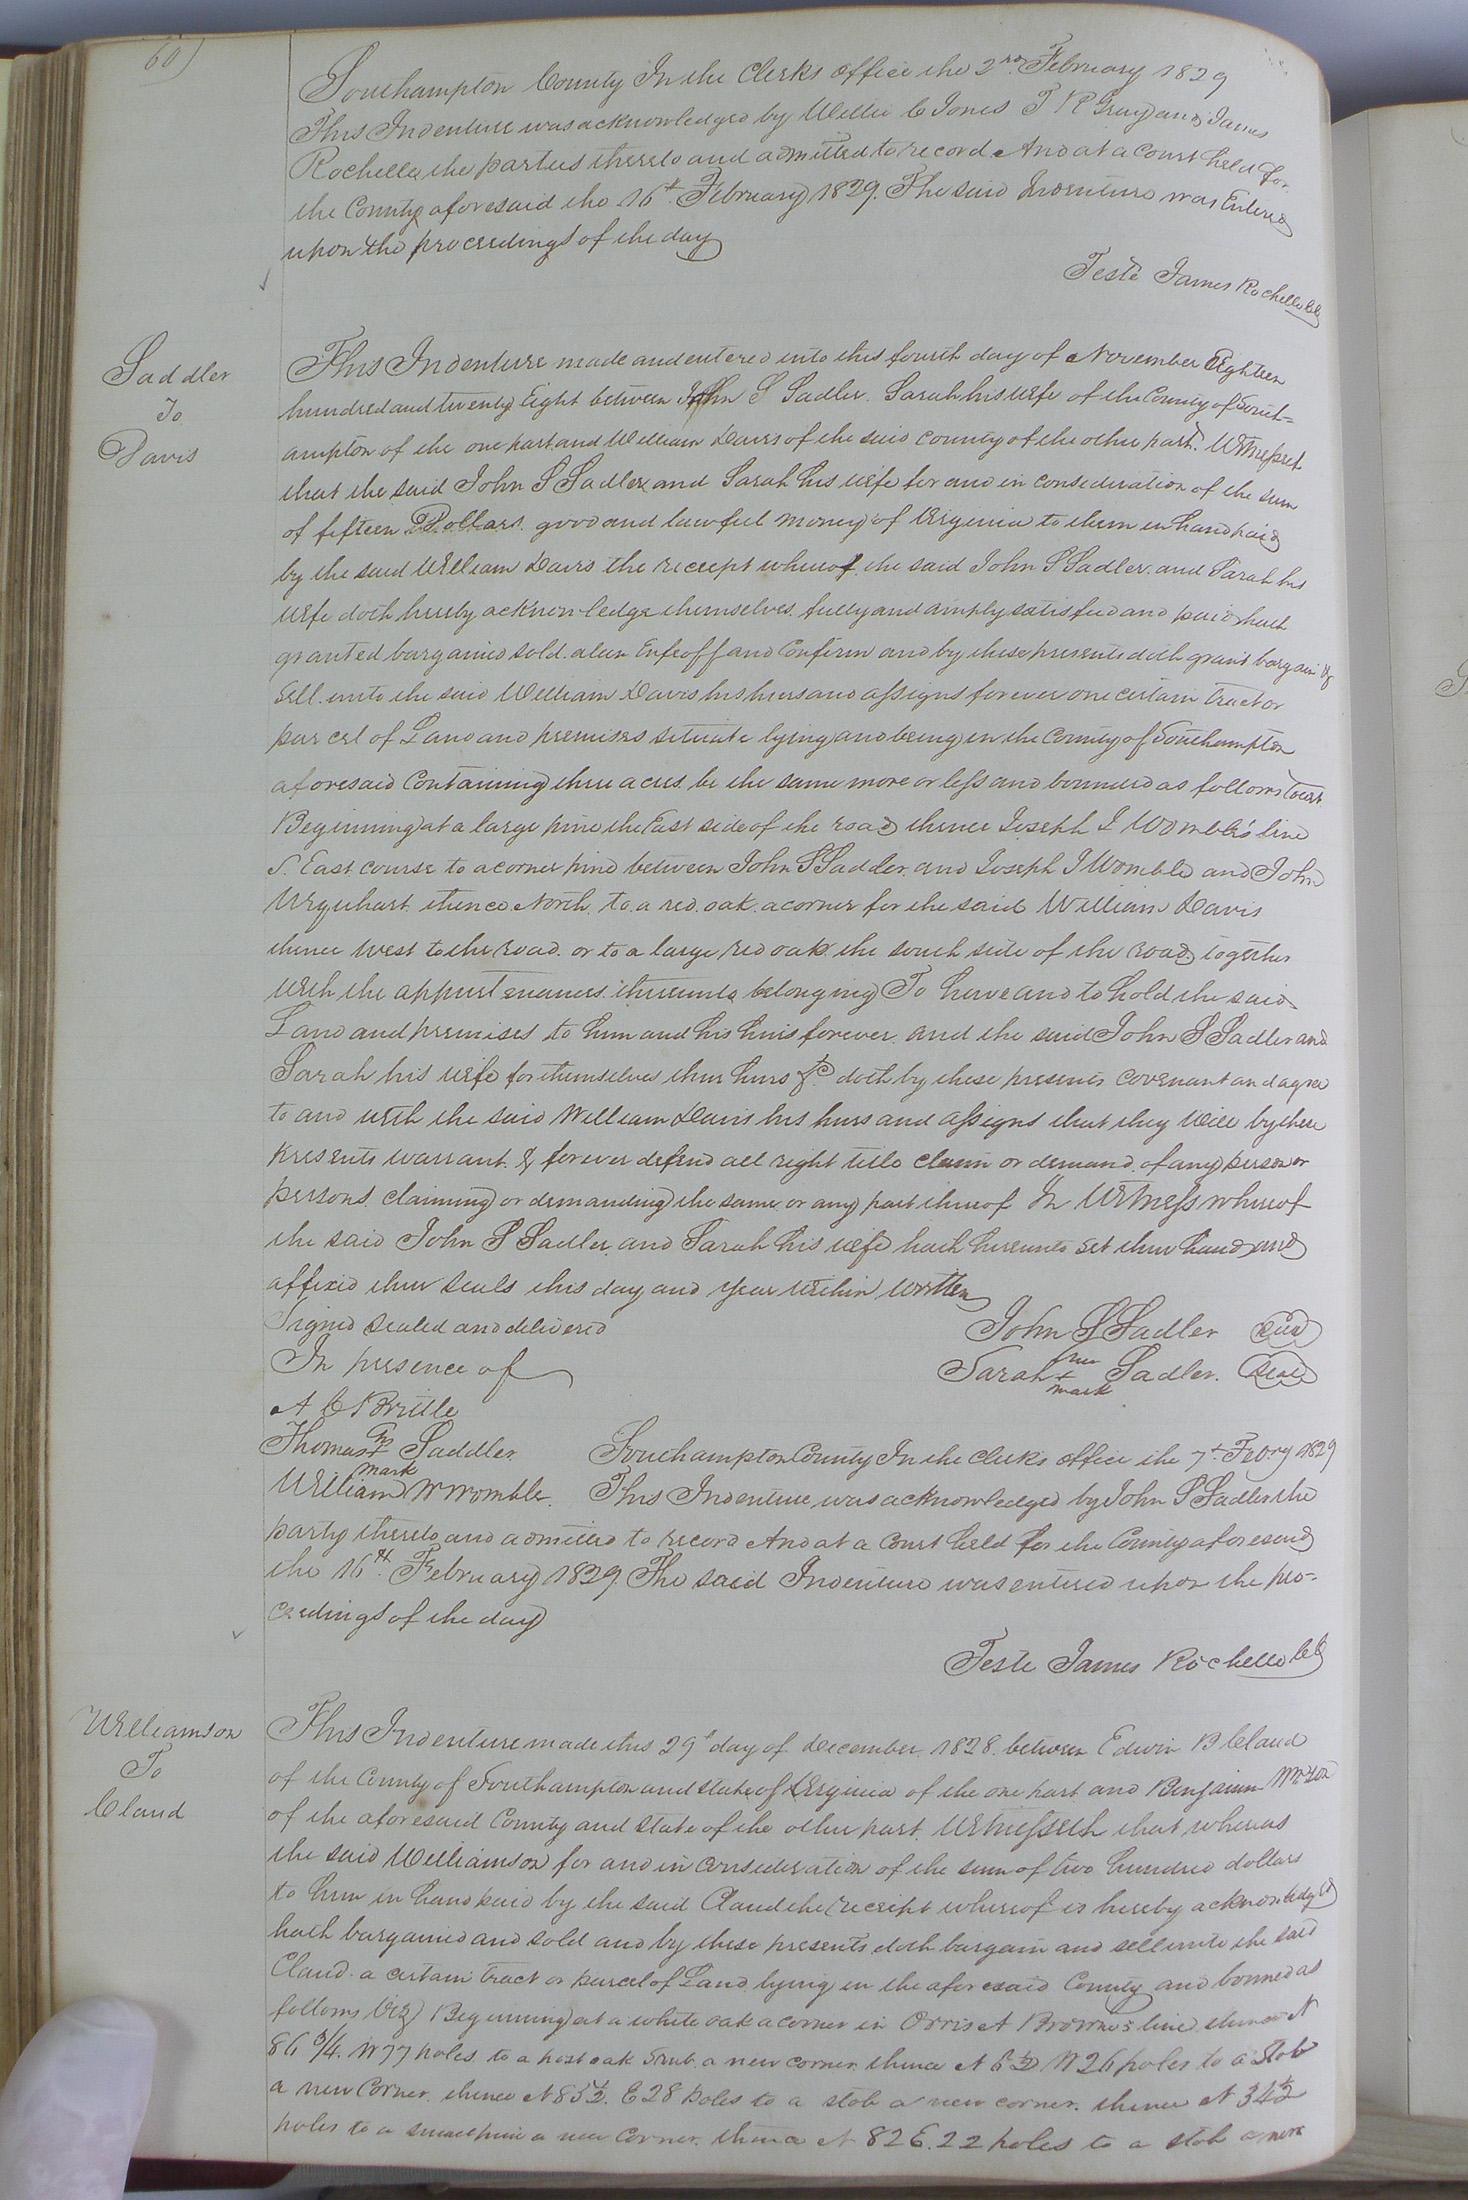 60)
Southampton County In the Clerks office the 2nd February 1829
This Indenture was acknowledged by Willie C Jones T R Gray and James
Rochelle the parties thereto and admitted to record And at a Court held for
the County aforesaid the 16th February 1829. The said Indenture was Entered
upon the proceedings of the day
Teste James Rochelle Clk
Saddler
To
Davis
This Indenture made and entered into this fourth day of November Eighteen
hundred and twenty Eight between John S Sadler Sarah his wife of the County of South=
ampton of the one part and William Davis of the said County of the other part. Witnesseth
that the said John S Sadler and Sarah his wife for and in consideration of the sum
of fifteen Dollars good and lawful money of Virginia to them in hand paid
by the said William Davis the receipt whereof the said John S Sadler and Sarah his
wife doth hereby acknowledge themselves fully and amply satisfied and paid hath
granted bargained sold alien Enfeoff and Confirm and by these presents doth grant bargain &
Sell unto the said William Davis his heirs and assigns forever one certain tract or
parcel of Land and premises situate lying and being in the County of Southampton
aforesaid Containing three acres be the same more or less and bounded as follows
Beginning at a large pine the East side of the road thence Joseph J Womble's line
S. East course to a corner pine between John S Sadler and Joseph J Womble and John
Urquhart thence North to a red oak a corner for the said William Davis
thence West to the road or to a large red oak the south side of the road together
with the appurtenances thereunto belonging To have and to hold the said
Land and premises to him and his heirs forever and the said John S Sadler and
Sarah his wife for themselves their heirs &c doth by these presents covenant and agree
to and with the said William Davis his heirs and assigns that they will by these
presents warrant & forever defend all right title claim or demand of any person or
persons claiming or demanding the same or any part thereof In Witness whereof
the said John S Sadler and Sarah his wife hath hereunto set their hand and
affixed their seals this day and year within written
Signed sealed and delivered John S Sadler Seal
In presence of Sarah her + mark Sadler. Seal
A C Brittle
Thomas his + mark Saddler
William W Womble.
Southampton County In the Clerks office the 7th Feb.ry 1829
This Indenture was acknowledged by John S Sadler the
party thereto and admitted to record And at a Court held for the County aforesaid
the 16th February 1829. The said Indenture was entered upon the pro-
ceedings of the day
Teste James Rochelle Clk
Williamson
To
Claud
This Indenture made this 29th day of December 1828. between Edwin B Claud
of the County of Southampton and state of Virginia of the one part and Benjamin Wmson
of the aforesaid County and State of the other part. Witnesseth that whereas
the said Williamson for and in consideration of the sum of two hundred dollars
to him in hand paid by the said Claud the receipt whereof is hereby acknowledged
hath bargained and sold and by these presents doth bargain and sell unto the said
Claud a certain tract or parcel of Land lying in the aforesaid County and bouned as
follows (viz) Beginning at a white oak a corner in Orris A Browne's line thence N
86 3/4. W 77 poles to a post oak a new corner thence N 6 1/2 W 26 poles to a Stob
a new Corner. thence N 85 1/2. E 28 poles to a stob a new corner. thence N 34 1/2
poles to a small pine a new Corner. thence N 82 E. 22 poles to a stob a new